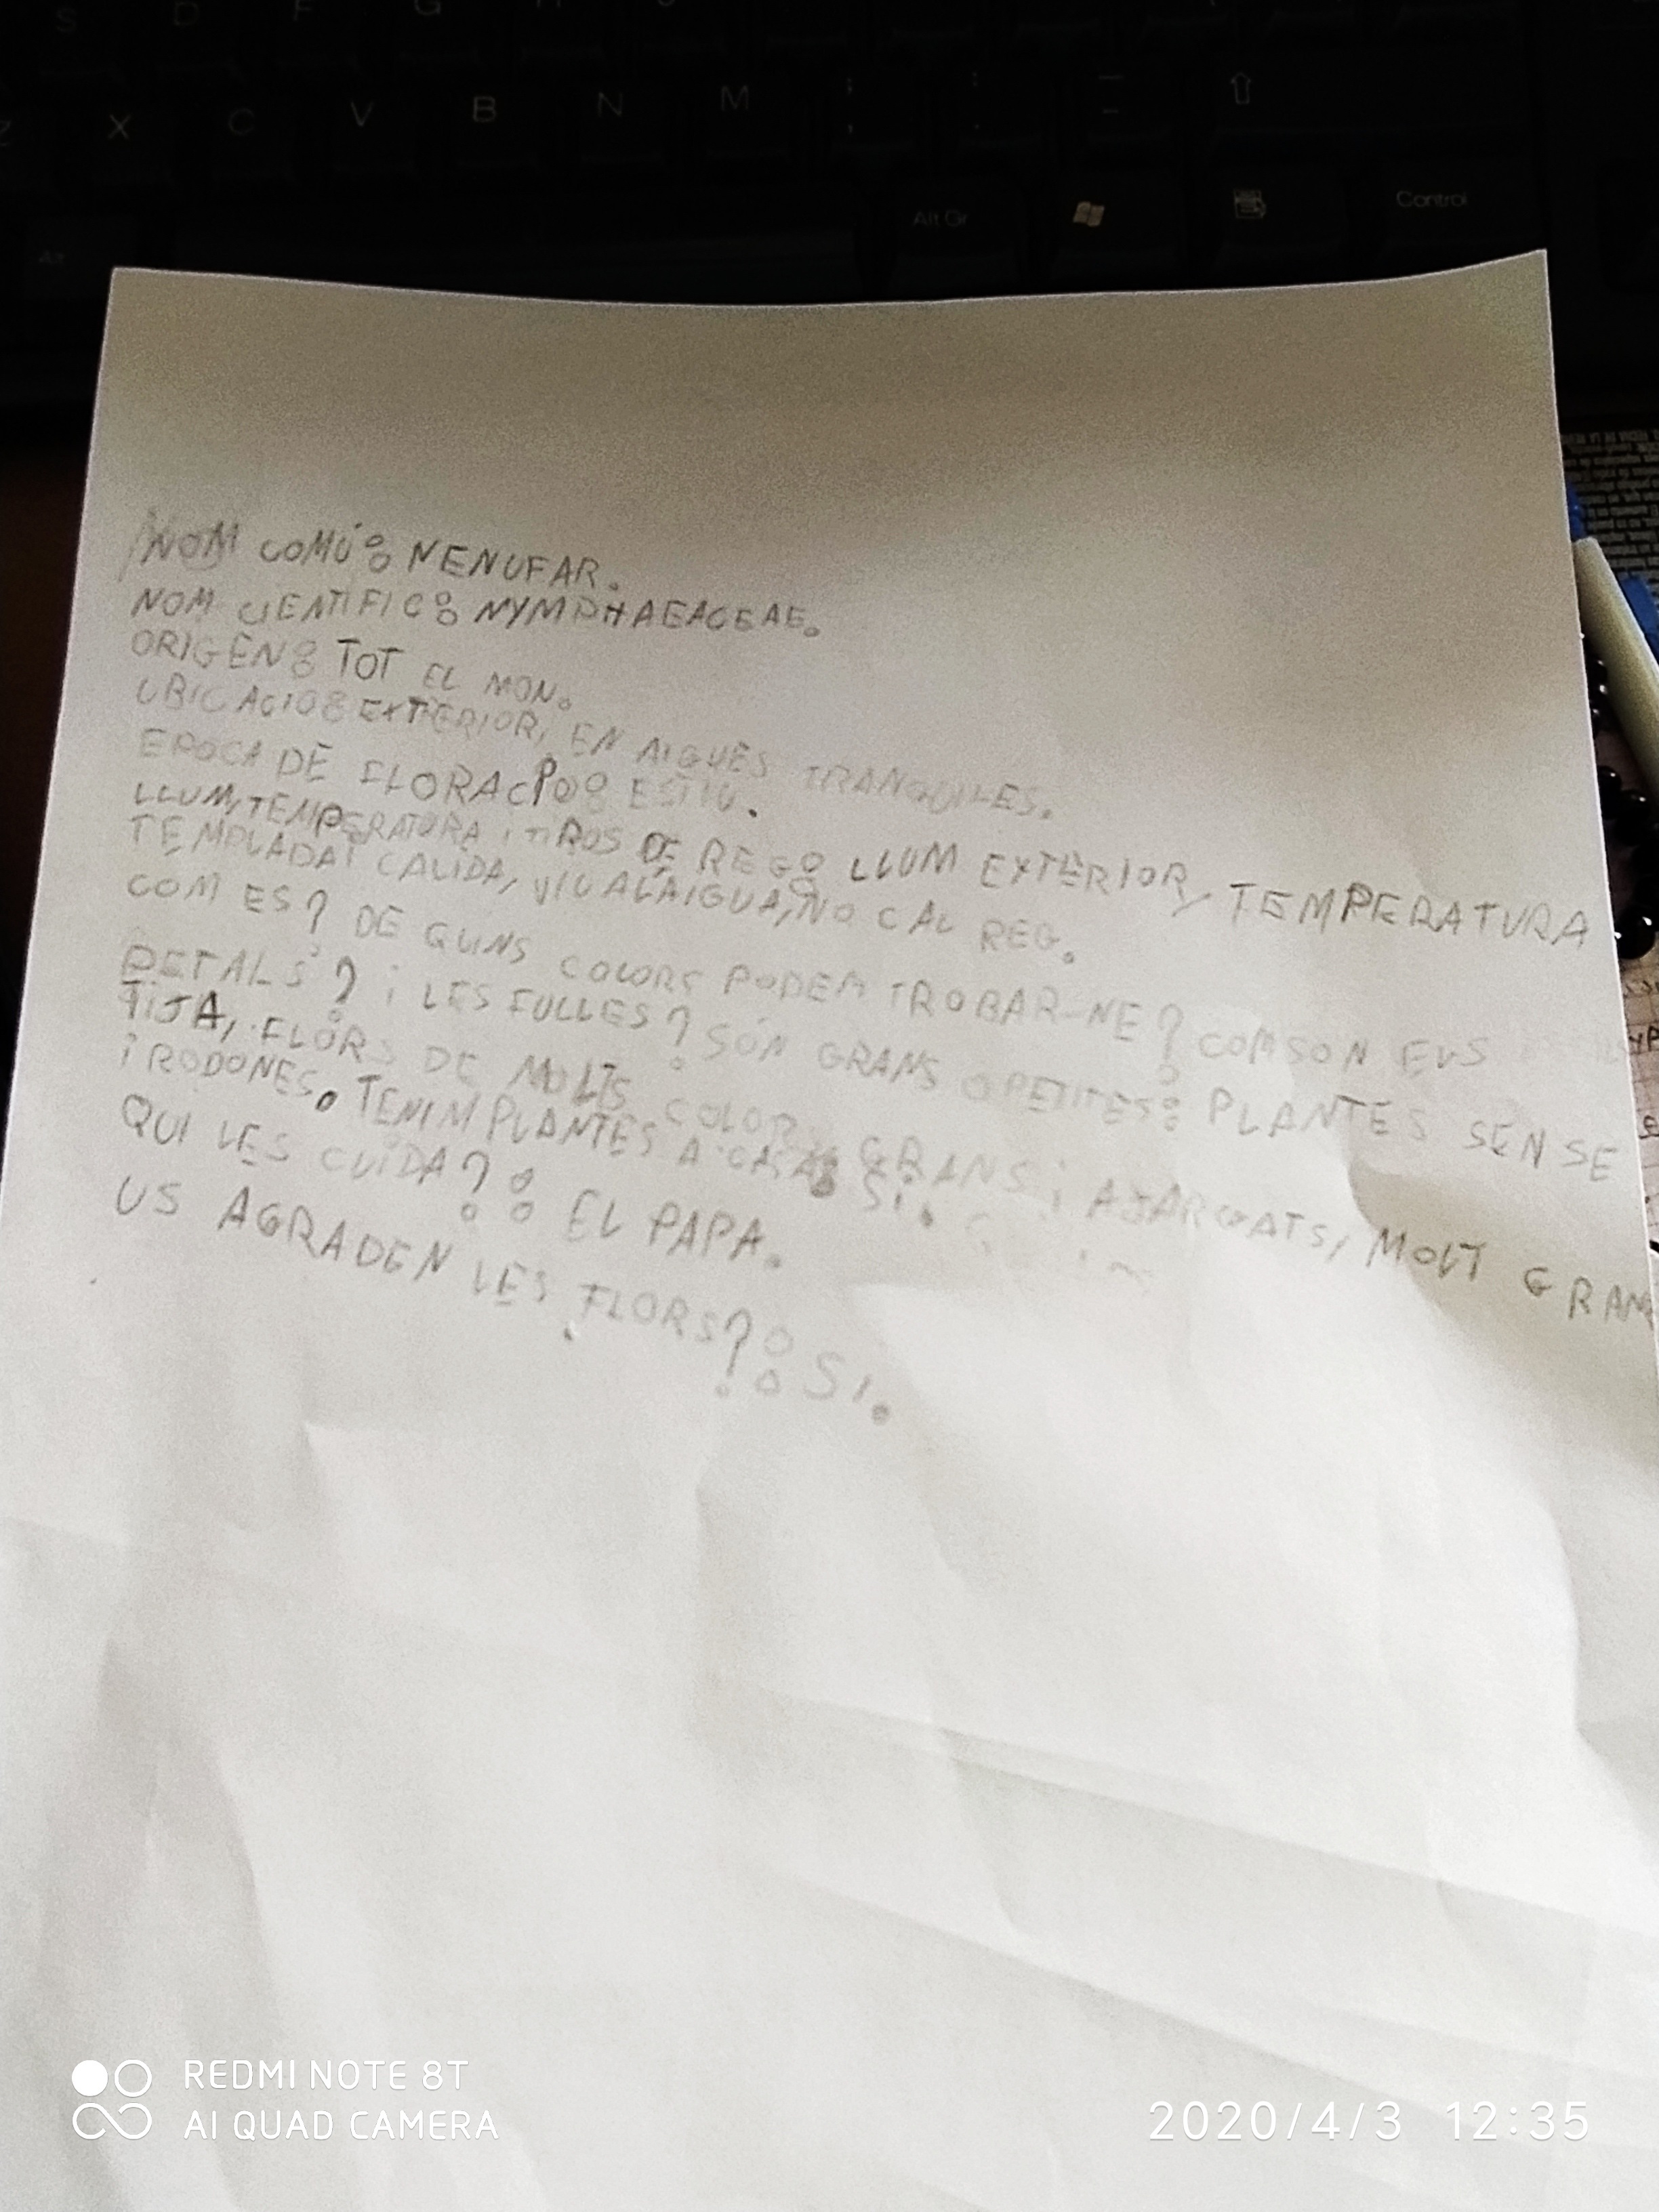 NOM COMÚ: NENUFAR.
NOM CIENTIFIC: NYMPHAEACEAE.
ORIGEN: TOT EL MON.
UBICACIO: EXTERIOR, EN AIGUES TRANQUILES.
EPOCA DE FLORACIO: ESTIU.
LLUM, TEMPERATURA I TIPOS DE REG: LLUM EXTERIOR, TEMPERATURA
TEMPLADA I CALIDA, VIU ALAIGUA, NO CAL REG.
COM ES? DE QUINS COLORS PODEM TROBAR-NE? COM SON ELS
PETALS? i LES FULLES? SÓN GRANS O PETITES: PLANTES SENSE
TIJA, FLORS DE MOLTS COLORS GRANS i AJARCATS, MOLT GRANS
i RODONES. TENIM PLANTES A CASA? SI.
QUI LES CUIDA?: EL PAPA.
US AGRADEN LES FLORS?: SI.
S D F G H J
Z X C V B N M
Alt Gr Control
REDMI NOTE 8T
AI QUAD CAMERA
2020/4/3 12:35